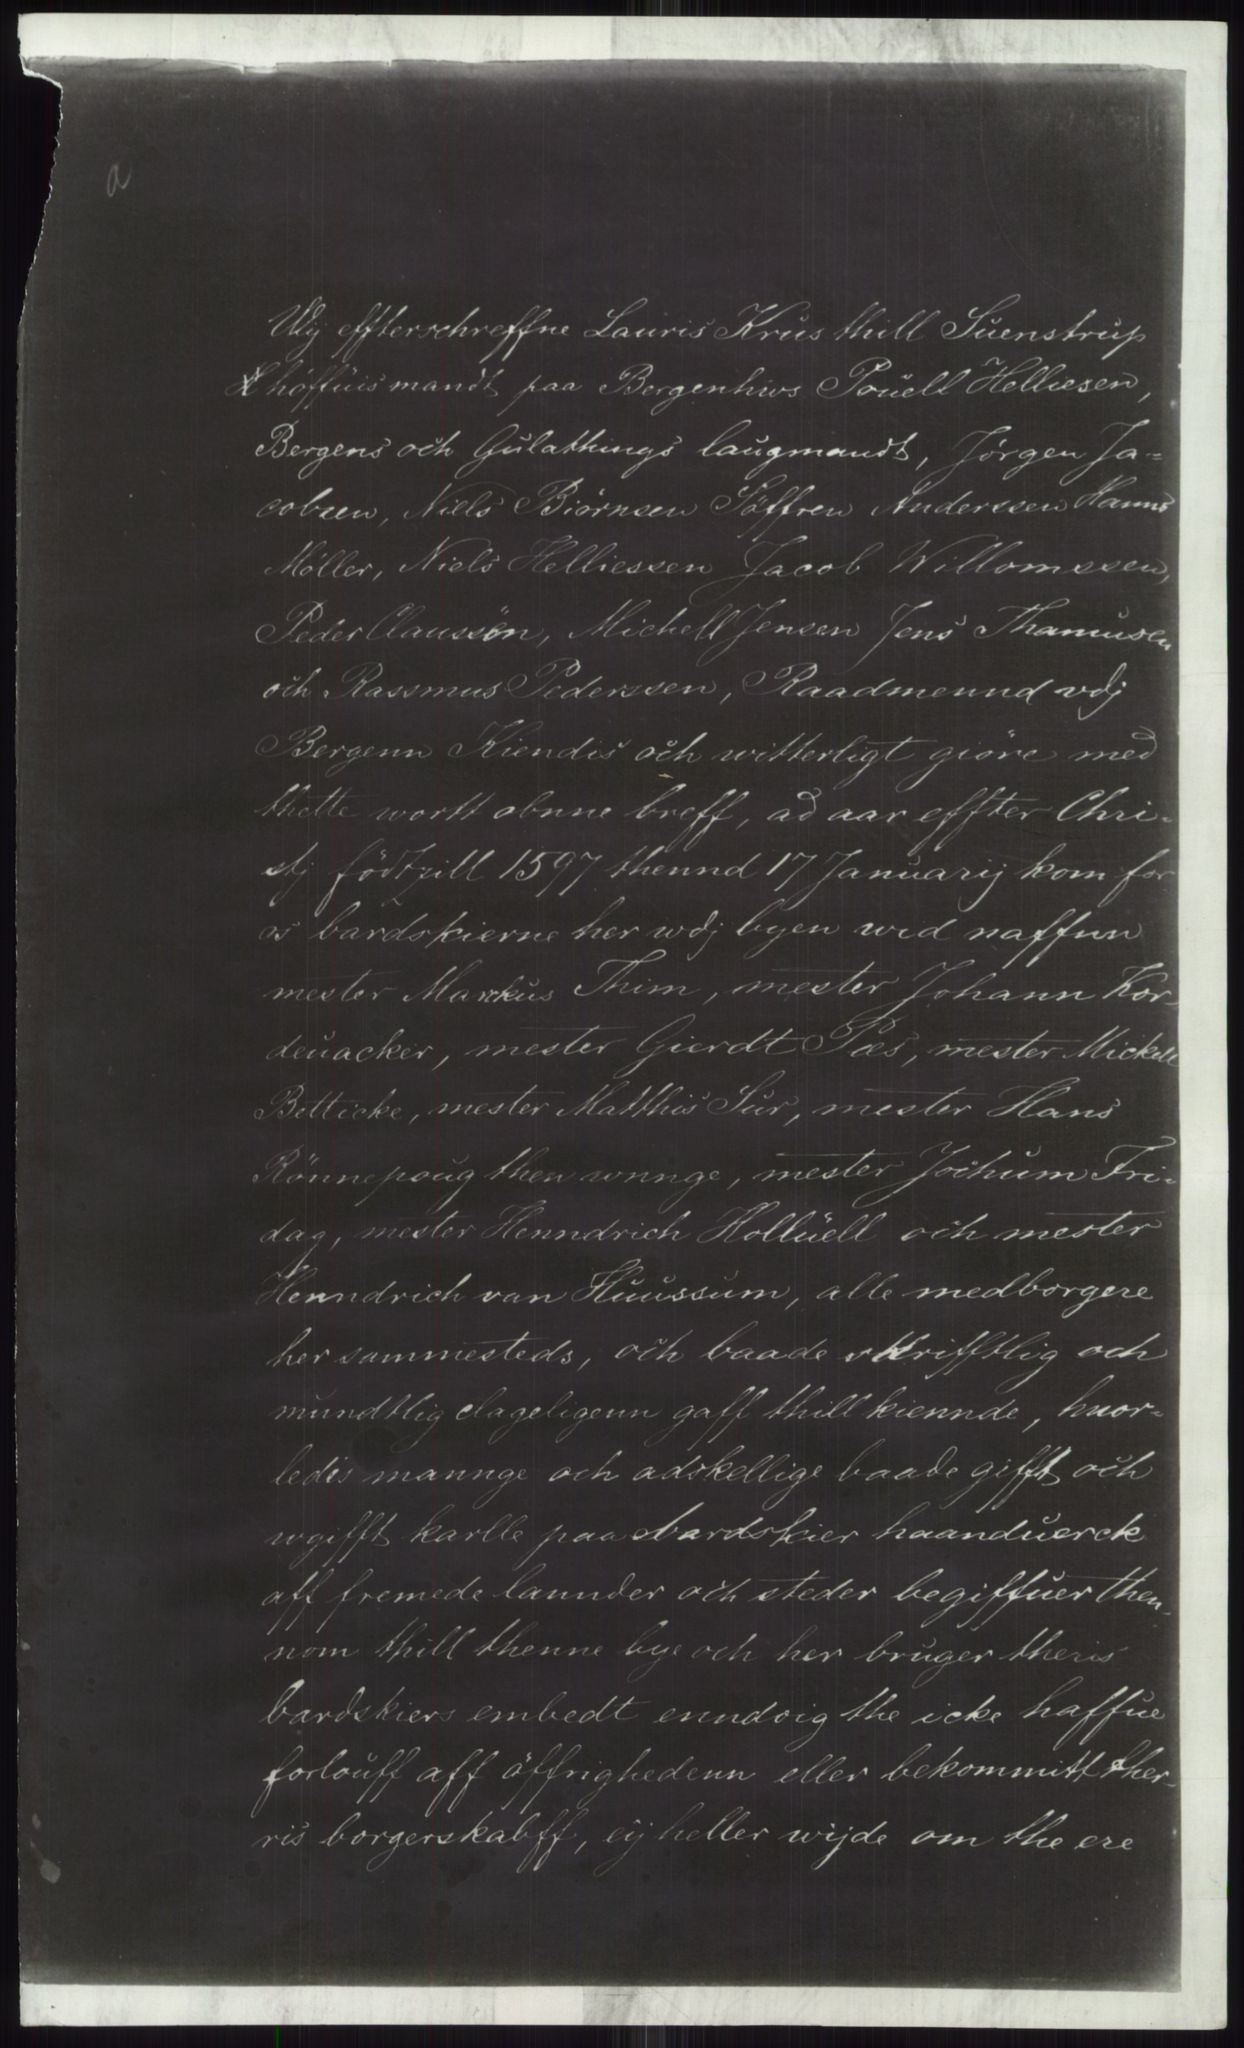 a
Wij effterschreffne Lauris Krus thill Suenstrup
höffuismandt paa Bergenhws Pouell Helliesen,
Bergens och Gulathings laugmandt, Jørgen Ja-
cobsen, Niels Biörnsen Söffren Anderssen Hanns
Möller, Niels Helliessen Jacob Willomssen,
Peder Claussön, Michell Jensen Jens Thamusen
och Rassmus Pederssen, Raadmennd vdj
Bergenn Kiendis och witterligt giöre med
thette wortt obnne breff, ad aar effter Chri-
stj födtzill 1597 thennd 17 Januarij kom for
os bardskierne her wdj byen wid naffnn
mester Markus Thim, mester Johann Kor-
deuacker, mester Gierdt Pæs, mester Mickell
Betticke, mester Matthis Sur, mester Hans
Rönnepoug then wnnge, mester Jochum Fri-
dag, mester Henndrich Holluell och mester
Henndrich van Huussum, alle medborgere
her sammesteds, och baade skrifftlig och
mundtlig clageligenn gaff thill kiennde, huor-
ledis mannge och adskellige baade gifft och
wgifft karlle paa bardskier haanduerck
aff fremede lannder och steder begiffuer then-
nom thill thenne bye och her bruger theris
bardskiers embedt enndoig the icke haffue
forlouff aff öffrighedenn eller bekommitt ther-
ris borgerskabff, eij heller wijde om the ere